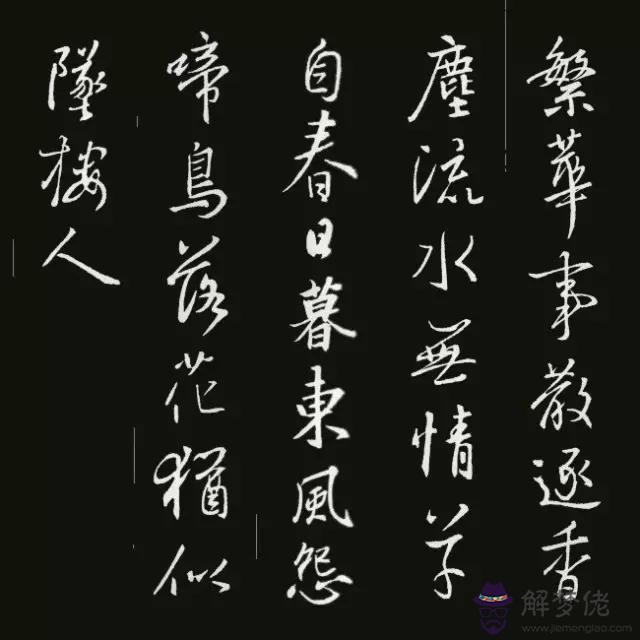 繁華事散逐香
塵流水無情草
自春日暮東風怨
啼鳥落花猶似
墜樓人
解梦佬
www.jiemenglao.com